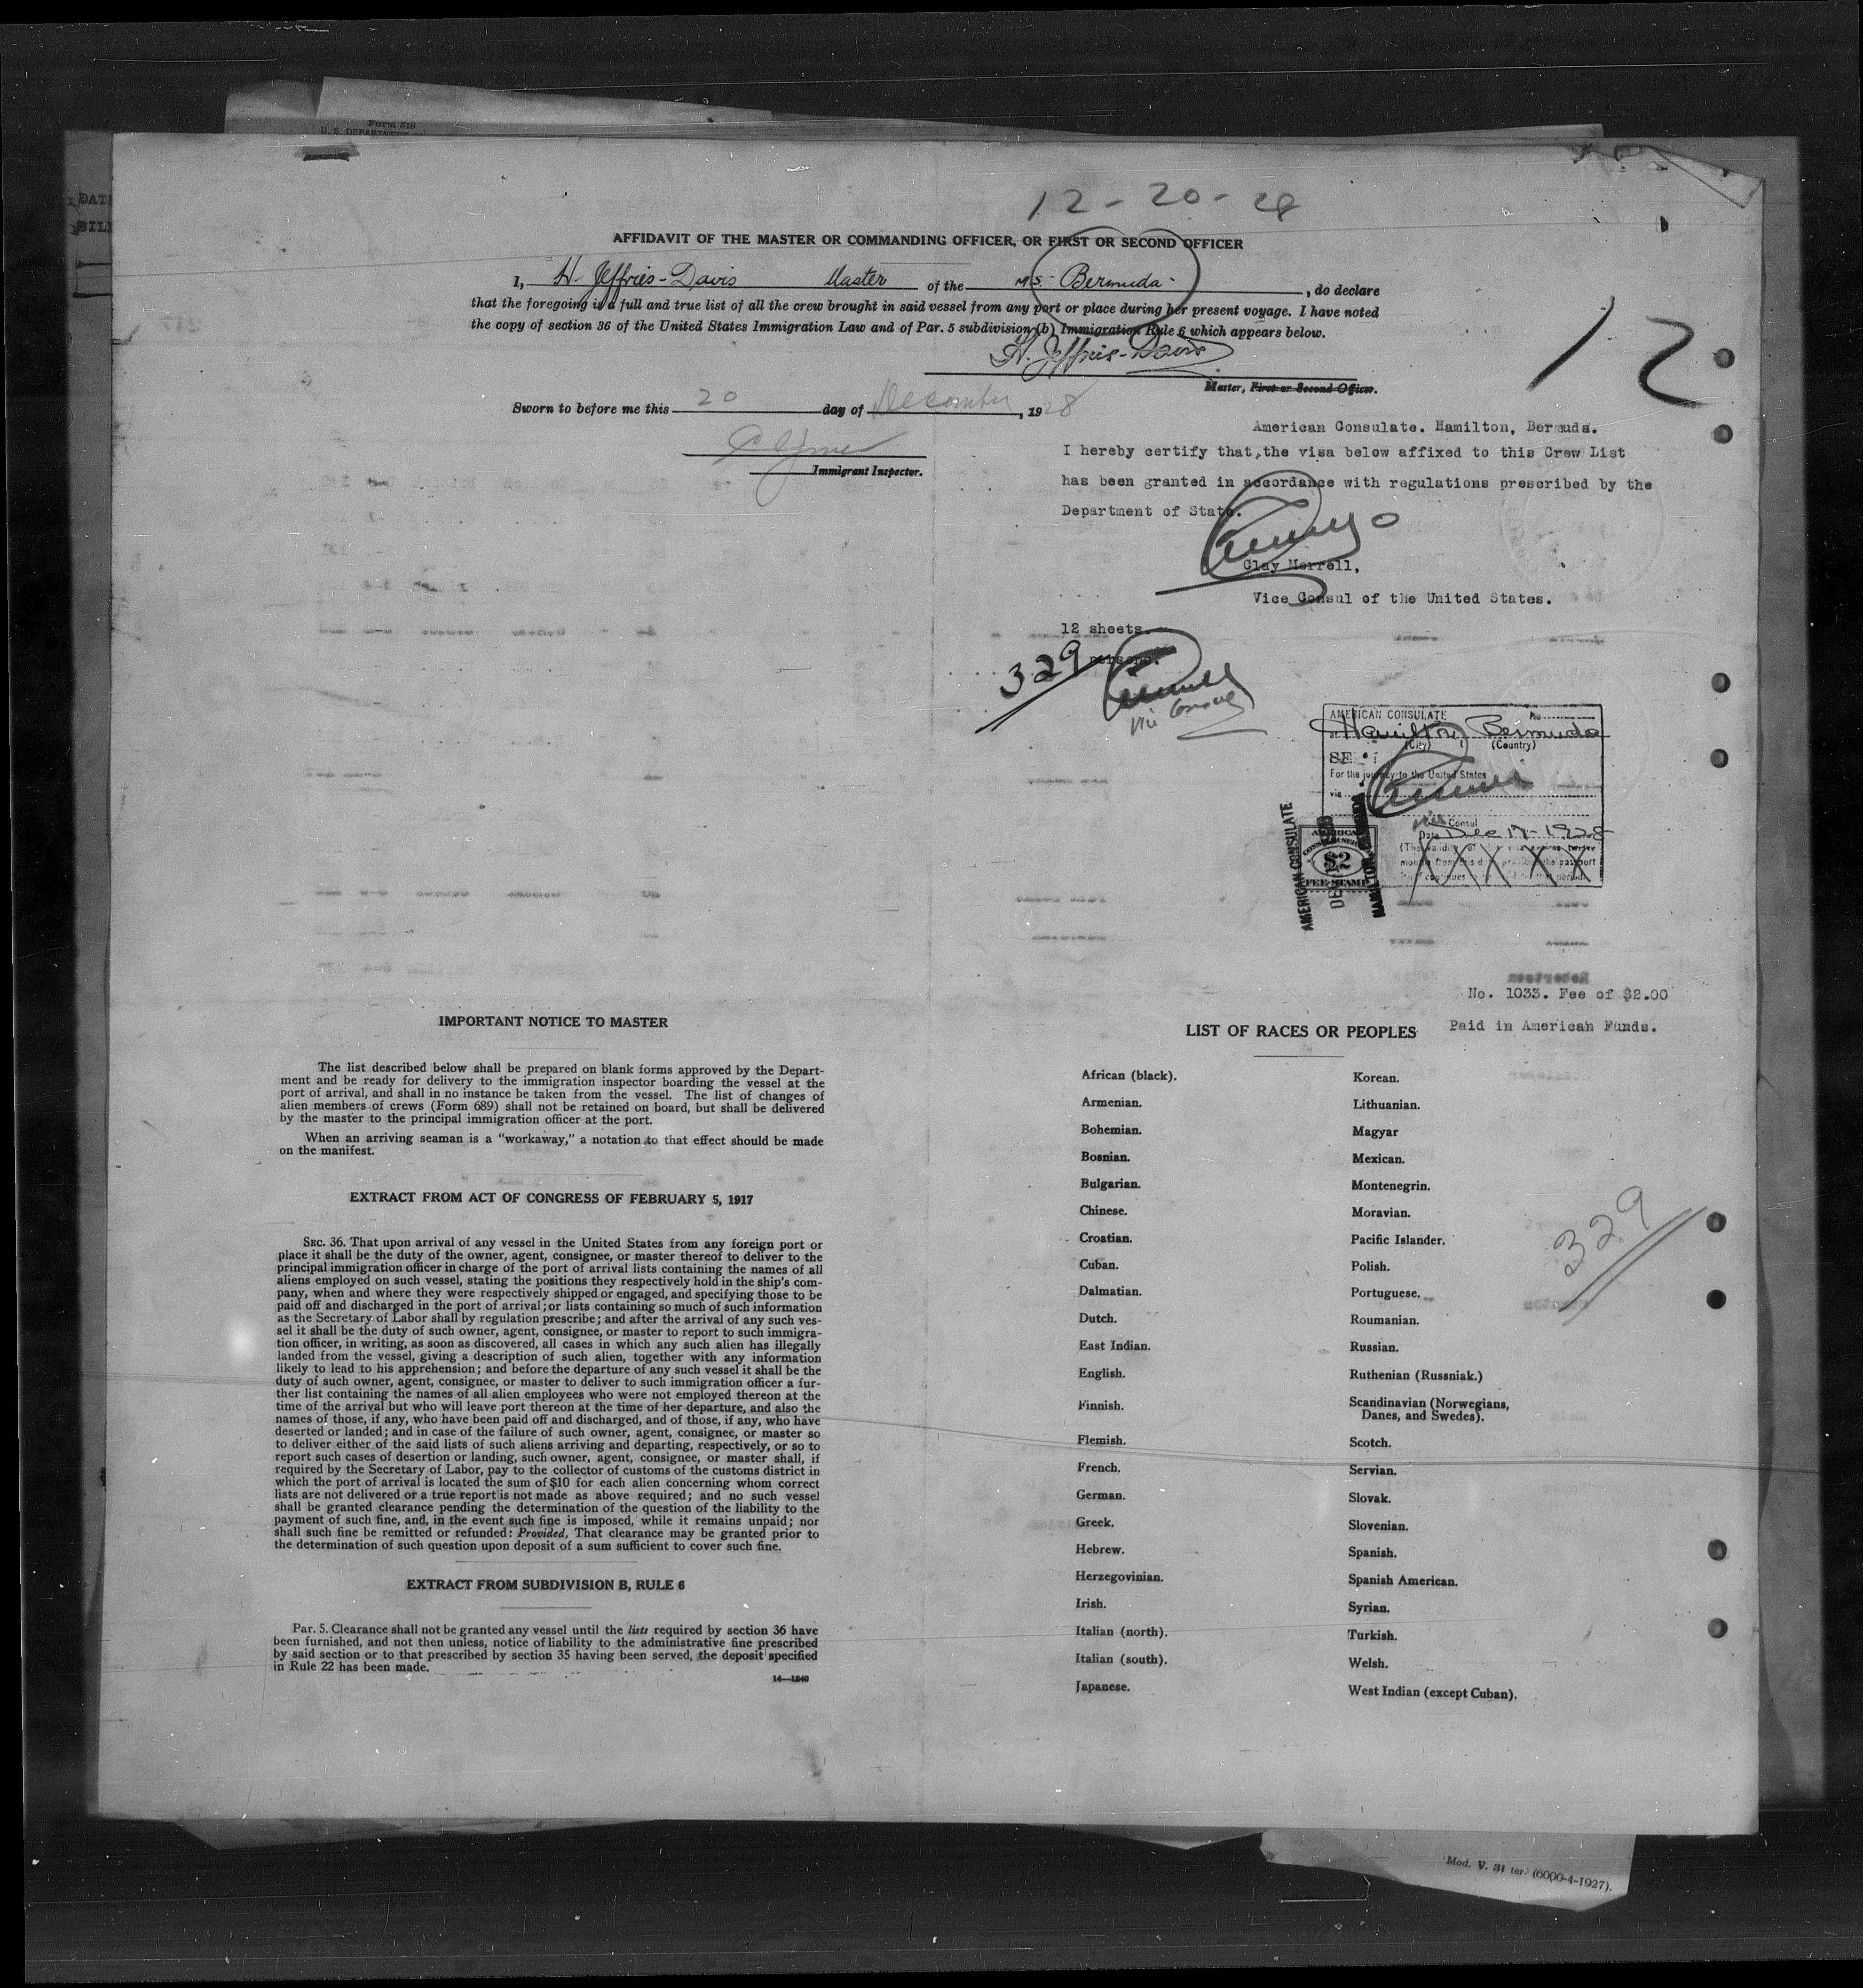 Form 518
U. S. DEPARTMENT
DAT
BIL
12-20-28
AFFIDAVIT OF THE MASTER OR COMMANDING OFFICER, OR FIRST OR SECOND OFFICER
I, H. Jeffries-Davis Master of the M.S. Bermuda, do declare
that the foregoing is a full and true list of all the crew brought in said vessel from any port or place during her present voyage. I have noted
the copy of section 36 of the United States Immigration Law and of Par. 5 subdivision (b) Immigration Rule 6 which appears below.
H. Jeffries-Davis
Master, First or Second Officer.
12
Sworn to before me this 20 day of December, 1928
Immigrant Inspector.
American Consulate. Hamilton, Bermuda.
I hereby certify that, the visa below affixed to this Crew List
has been granted in accordance with regulations prescribed by the
Department of State.
Clay Merrell,
Vice Consul of the United States.
12 sheets.
329 persons.
Vice Consul
AMERICAN CONSULATE No.
at Hamilton Bermuda
(City) (Country)
SE
For the journey to the United States
via
Vice Consul
Date Dec 17-1928
AMERICAN CONSULATE
HAMILTON, BERMUDA
AMERICAN
$2
FEE STAMP
No. 1033. Fee of $2.00
Paid in American Funds.
IMPORTANT NOTICE TO MASTER
The list described below shall be prepared on blank forms approved by the Depart-
ment and be ready for delivery to the immigration inspector boarding the vessel at the
port of arrival, and shall in no instance be taken from the vessel. The list of changes of
alien members of crews (Form 689) shall not be retained on board, but shall be delivered
by the master to the principal immigration officer at the port.
When an arriving seaman is a "workaway," a notation to that effect should be made
on the manifest.
EXTRACT FROM ACT OF CONGRESS OF FEBRUARY 5, 1917
SEC. 36. That upon arrival of any vessel in the United States from any foreign port or
place it shall be the duty of the owner, agent, consignee, or master thereof to deliver to the
principal immigration officer in charge of the port of arrival lists containing the names of all
aliens employed on such vessel, stating the positions they respectively hold in the ship's com-
pany, when and where they were respectively shipped or engaged, and specifying those to be
paid off and discharged in the port of arrival; or lists containing so much of such information
as the Secretary of Labor shall by regulation prescribe; and after the arrival of any such ves-
sel it shall be the duty of such owner, agent, consignee, or master to report to such immigra-
tion officer, in writing, as soon as discovered, all cases in which any such alien has illegally
landed from the vessel, giving a description of such alien, together with any information
likely to lead to his apprehension; and before the departure of any such vessel it shall be the
duty of such owner, agent, consignee, or master to deliver to such immigration officer a fur-
ther list containing the names of all alien employees who were not employed thereon at the
time of the arrival but who will leave port thereon at the time of her departure, and also the
names of those, if any, who have been paid off and discharged, and of those, if any, who have
deserted or landed; and in case of the failure of such owner, agent, consignee, or master so
to deliver either of the said lists of such aliens arriving and departing, respectively, or so to
report such cases of desertion or landing, such owner, agent, consignee, or master shall, if
required by the Secretary of Labor, pay to the collector of customs of the customs district in
which the port of arrival is located the sum of $10 for each alien concerning whom correct
lists are not delivered or a true report is not made as above required; and no such vessel
shall be granted clearance pending the determination of the question of the liability to the
payment of such fine, and, in the event such fine is imposed, while it remains unpaid; nor
shall such fine be remitted or refunded: Provided, That clearance may be granted prior to
the determination of such question upon deposit of a sum sufficient to cover such fine.
EXTRACT FROM SUBDIVISION B, RULE 6
Par. 5. Clearance shall not be granted any vessel until the lists required by section 36 have
been furnished, and not then unless, notice of liability to the administrative fine prescribed
by said section or to that prescribed by section 35 having been served, the deposit specified
in Rule 22 has been made.
14—1240
LIST OF RACES OR PEOPLES
African (black).
Armenian.
Bohemian.
Bosnian.
Bulgarian.
Chinese.
Croatian.
Cuban.
Dalmatian.
Dutch.
East Indian.
English.
Finnish.
Flemish.
French.
German.
Greek.
Hebrew.
Herzegovinian.
Irish.
Italian (north).
Italian (south).
Japanese.
Korean.
Lithuanian.
Magyar
Mexican.
Montenegrin.
Moravian.
Pacific Islander.
Polish.
Portuguese.
Roumanian.
Russian.
Ruthenian (Russniak.)
Scandinavian (Norwegians,
Danes, and Swedes).
Scotch.
Servian.
Slovak.
Slovenian.
Spanish.
Spanish American.
Syrian.
Turkish.
Welsh.
West Indian (except Cuban).
329
Mod. V. 31 ter. (6000-4-1927).